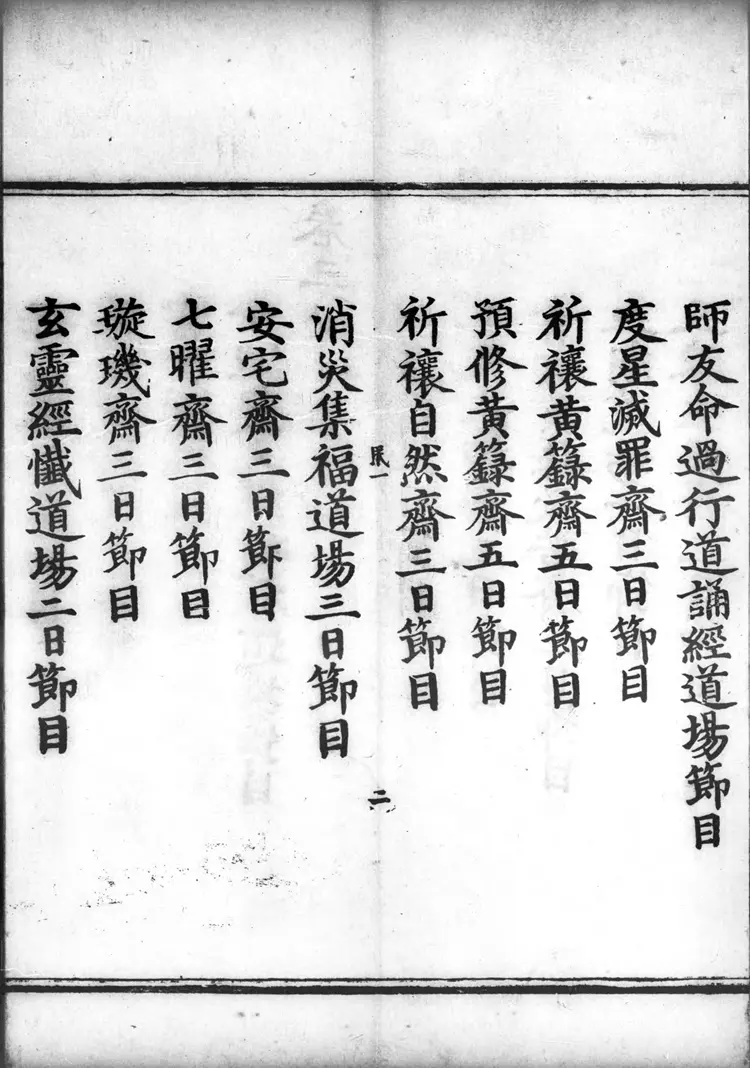 師友命過行道誦經道場節目
度星滅罪齋三日節目
祈禳黃籙齋五日節目
預修黃籙齋五日節目
祈禳自然齋三日節目
二
消災集福道場三日節目
安宅齋三日節目
七曜齋三日節目
璇璣齋三日節目
玄靈經懺道場二日節目